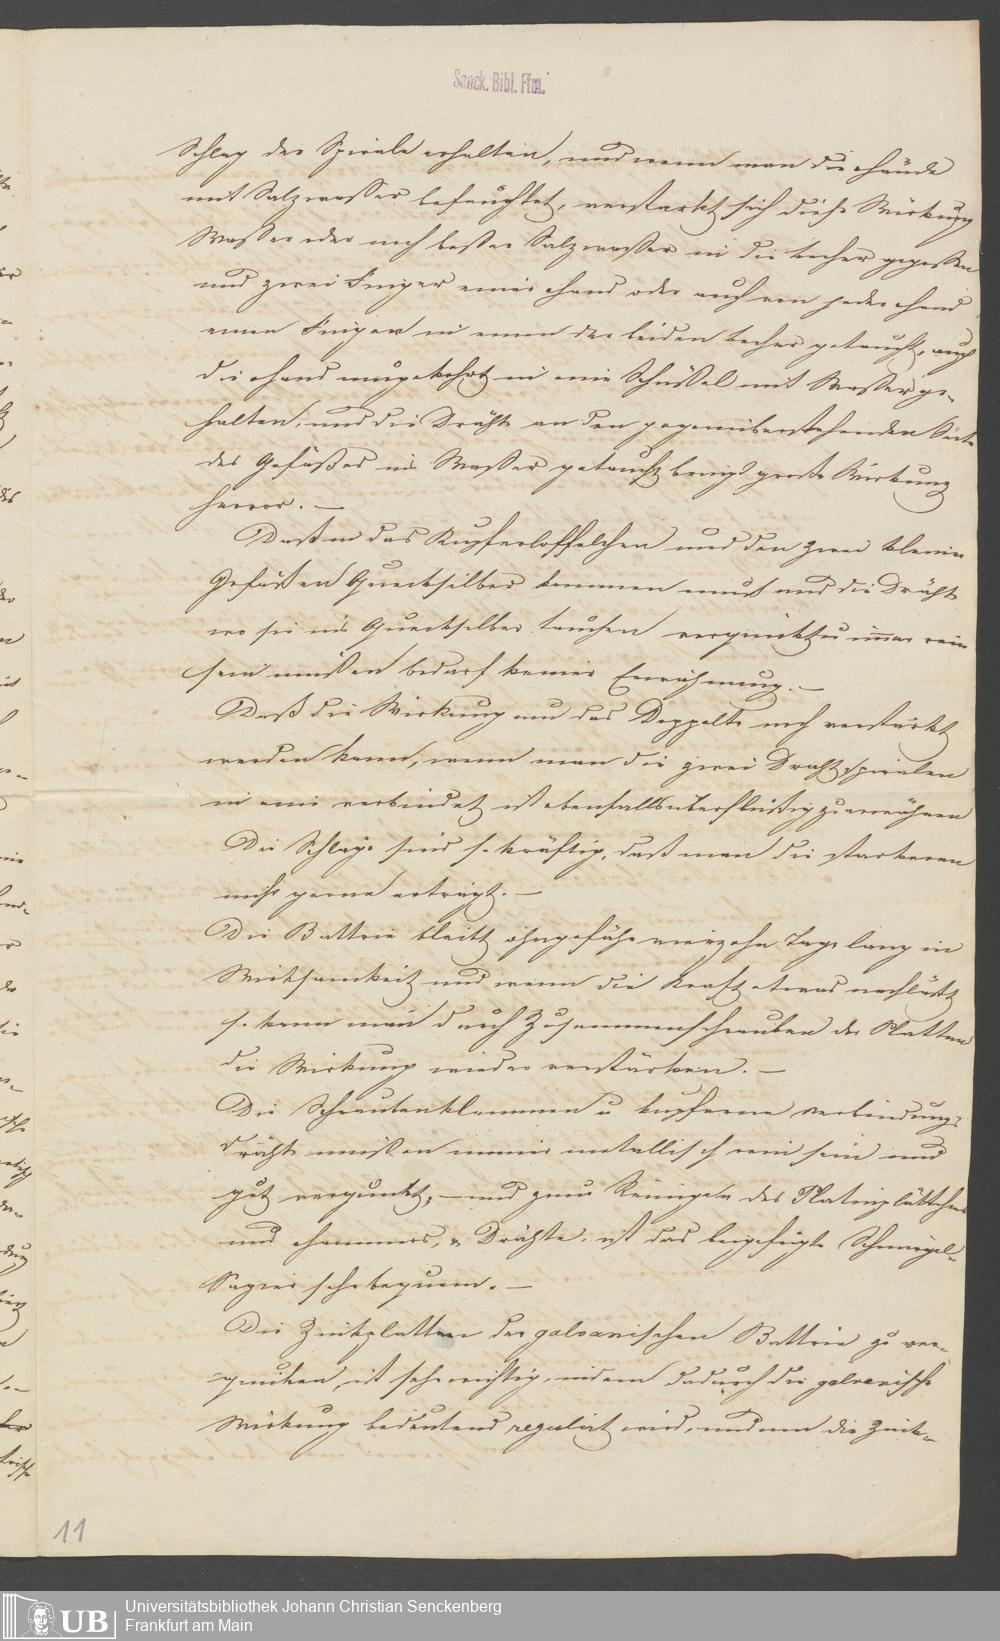 Senck. Bibl. Ffm.
Schlag der Spirale erhalten, und wenn man die Hände
mit Salzwasser befeuchtet, verstärkt sich diese Wirkung
Wasser oder noch besser Salzwasser in die Becher gegossen
und zwei Finger einer Hand oder auch von jeder Hand
einen Finger in einen der beiden Becher getaucht, auch
die Hand umgekehrt in eine Schüssel mit Wasser ge-
halten, und die Dräthe an den gegenüberstehenden Seiten
des Gefäßes ins Wasser getaucht bringt große Wirkung
hervor. —
Daß in das Kupferlöffelchen und den zwei kleinen
Gefäßen Quecksilber kommen muß und die Dräthe
wo sie ins Quecksilber tauchen verquickt u immer rein
sein müssen bedarf keiner Erwähnung. —
Daß die Wirkung um das Doppelte noch verstärkt
werden kann, wenn man die zwei Drahtspiralen
in eine verbindet ist ebenfalls überflüssig zu erwähnen
Die Schläge sind so kräftig, daß man die starkeren
nicht gerne erträgt. —
Die Battrie bleibt ohngefähr vierzehn Tage lang in
Wirksamkeit und wenn die Kraft etwas nachläßt
so kann man durch Zusammenschrauben der Platten
die Wirkung wieder verstärken. —
Die Schraubenklemmen u kupferne Verbindungs
dräthe müssen immer metallisch rein sein und
gut verquickt, — und zum Reinigen des Platinplättchens
und Hammers, u Dräthe, ist das beigefügte Schmirgel-
Papier sehr bequem. —
Die Zinkplatten der galvanischen Battrie zu ver-
quicken, ist sehr wichtig, indem dadurch die galvanische
Wirkung bedeutend regulirt wird, und um die Zink-
11
UB
Universitätsbibliothek Johann Christian Senckenberg
Frankfurt am Main